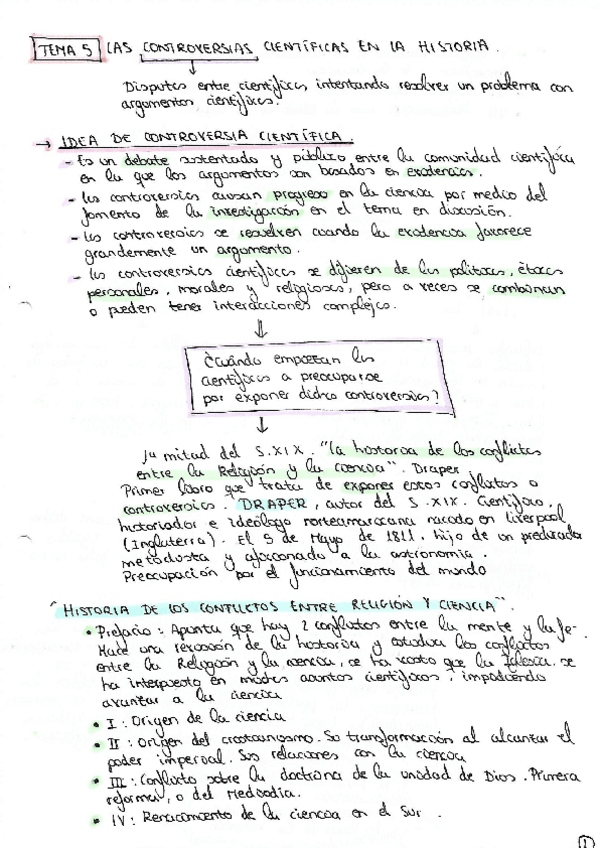 TEMA 5 LAS CONTROVERSIAS CIENTÍFICAS EN LA HISTORIA.
Disputas entre científicos, intentando resolver un problema con
argumentos científicos.
→ IDEA DE CONTROVERSIA CIENTÍFICA.
- Es un debate sostentado y público entre la comunidad científica
en la que los argumentos son basados en evidencias.
- Las controversias causan progreso en la ciencia por medio del
fomento de la investigación en el tema en discusión.
- Las controversias se resuelven cuando la evidencia favorece
grandemente un argumento.
- Las controversias científicas se difieren de las políticas, éticas
personales, morales y religiosas, pero a veces se combinan
o pueden tener interacciones complejas.
¿Cuándo empiezan los
científicos a preocuparse
por exponer dichas controversias?
mitad del S.XIX. "La historia de los conflictos
entre la Religión y la ciencia". Draper
Primer libro que trata de exponer estos conflictos o
controversias. DRAPER, autor del S.XIX. Científico,
historiador e ideólogo norteamericano nacido en Liverpool
(Inglaterra). El 5 de Mayo de 1811, hijo de un predicador
metodista y aficionado a la astronomía.
Preocupación por el funcionamiento del mundo
"HISTORIA DE LOS CONFLICTOS ENTRE RELIGIÓN Y CIENCIA".
• Prefacio: Apunta que hay 2 conflictos entre la mente y la fe.
Hace una revisión de la historia y estudia los conflictos
entre la Religión y la ciencia, se ha visto que la Iglesia se
ha interpuesto en asuntos científicos, impidiendo
avanzar a la ciencia
• I: Origen de la ciencia
• II: Origen del cristianismo. Su transformación al alcanzar el
poder imperial. Sus relaciones con la ciencia
• III: Conflicto sobre la doctrina de la unidad de Dios. Primera
reforma, o del Mediodía.
• IV: Renacimiento de la ciencia en el Sur.
1